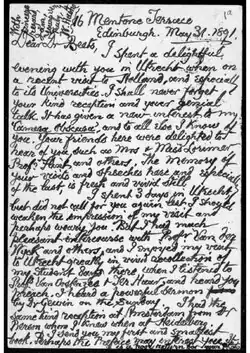 16 Mentone Terrace
Edinburgh. May 31. 1891.
Dear Dr Beets,
I spent a delightful
evening with you in Utrecht when on
a recent visit to Holland, and especially
to its Universities. I shall never forget
your kind reception and your genial
talk. It has given a new interest to my
Camera Obscura, and to all else I know of
you. Your friends here were delighted to
hear of you, such as Mrs & Miss Lorimer
Prof. and others. The memory of
your visits and speeches here and especially
of the last is fresh and vivid still.
I spent 3 days in Utrecht
but did not call for you again lest I should
weaken the impression of my visit and
perhaps weary you. But I had much
pleasant intercourse with Prof. Van der
and others, and I enjoyed my visit
to Utrecht greatly in vivid recollection of
my Student days there, when I listened to
Profs Van Oosterzee & Ter Haar, and heard you
preach. I heard a powerful sermon
by Dr on the Sunday. I had the
same kind reception at Amsterdam from Dr
whom I knew when at Heidelberg.
I send you my first and smallest
book. Perhaps the Preface may interest you. It